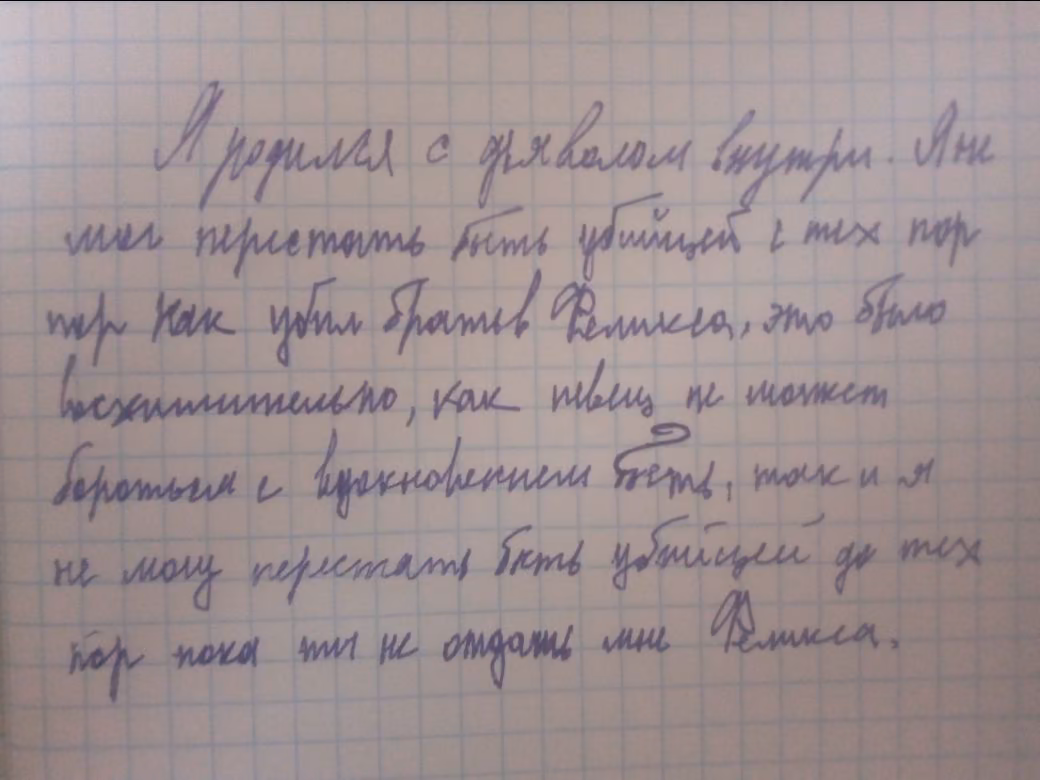 Я родился с дьяволом внутри. Я не
мог перестать быть убийцей с тех пор
пор как убил братьев Феликса, это было
восхитительно, как певец не может
бороться с вдохновением быть, так и я
не могу перестать быть убийцей до тех
пор пока ты не отдашь мне Феликса.